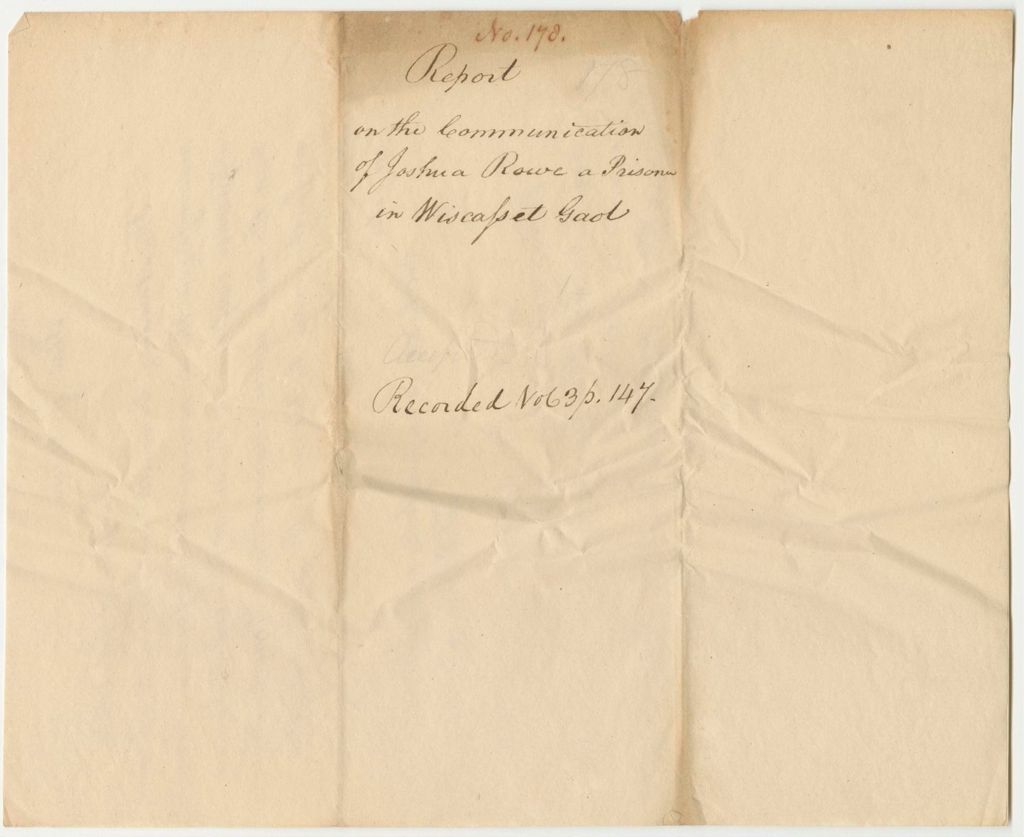 No. 178.
Report
178
on the Communication
of Joshua Rowe a Prisoner
in Wiscaſset Gaol
Recorded Vol 3 p. 147.